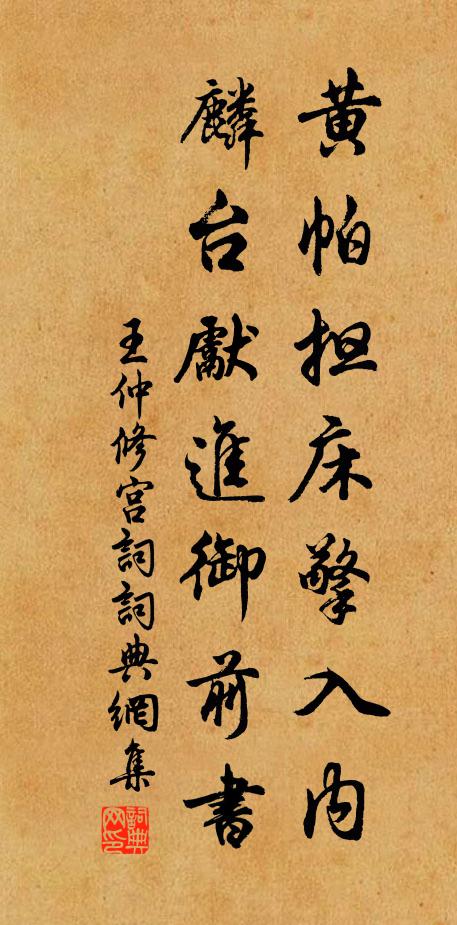 黄帕担床擎入内
麟台獻進御前書
王仲修宫詞詞典網集
詞典网印